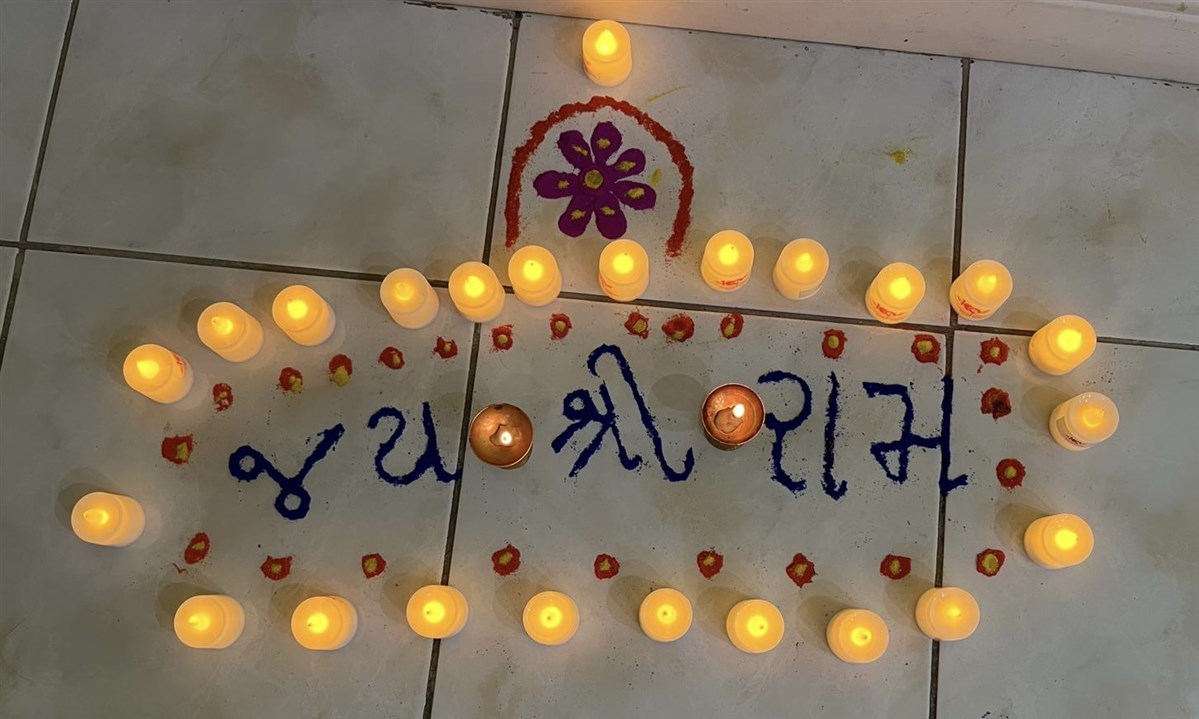 જય શ્રી રામ